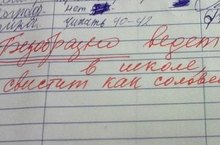 нет
читать 40-42
Безобразно ведет
в школе,
свистит как соловей